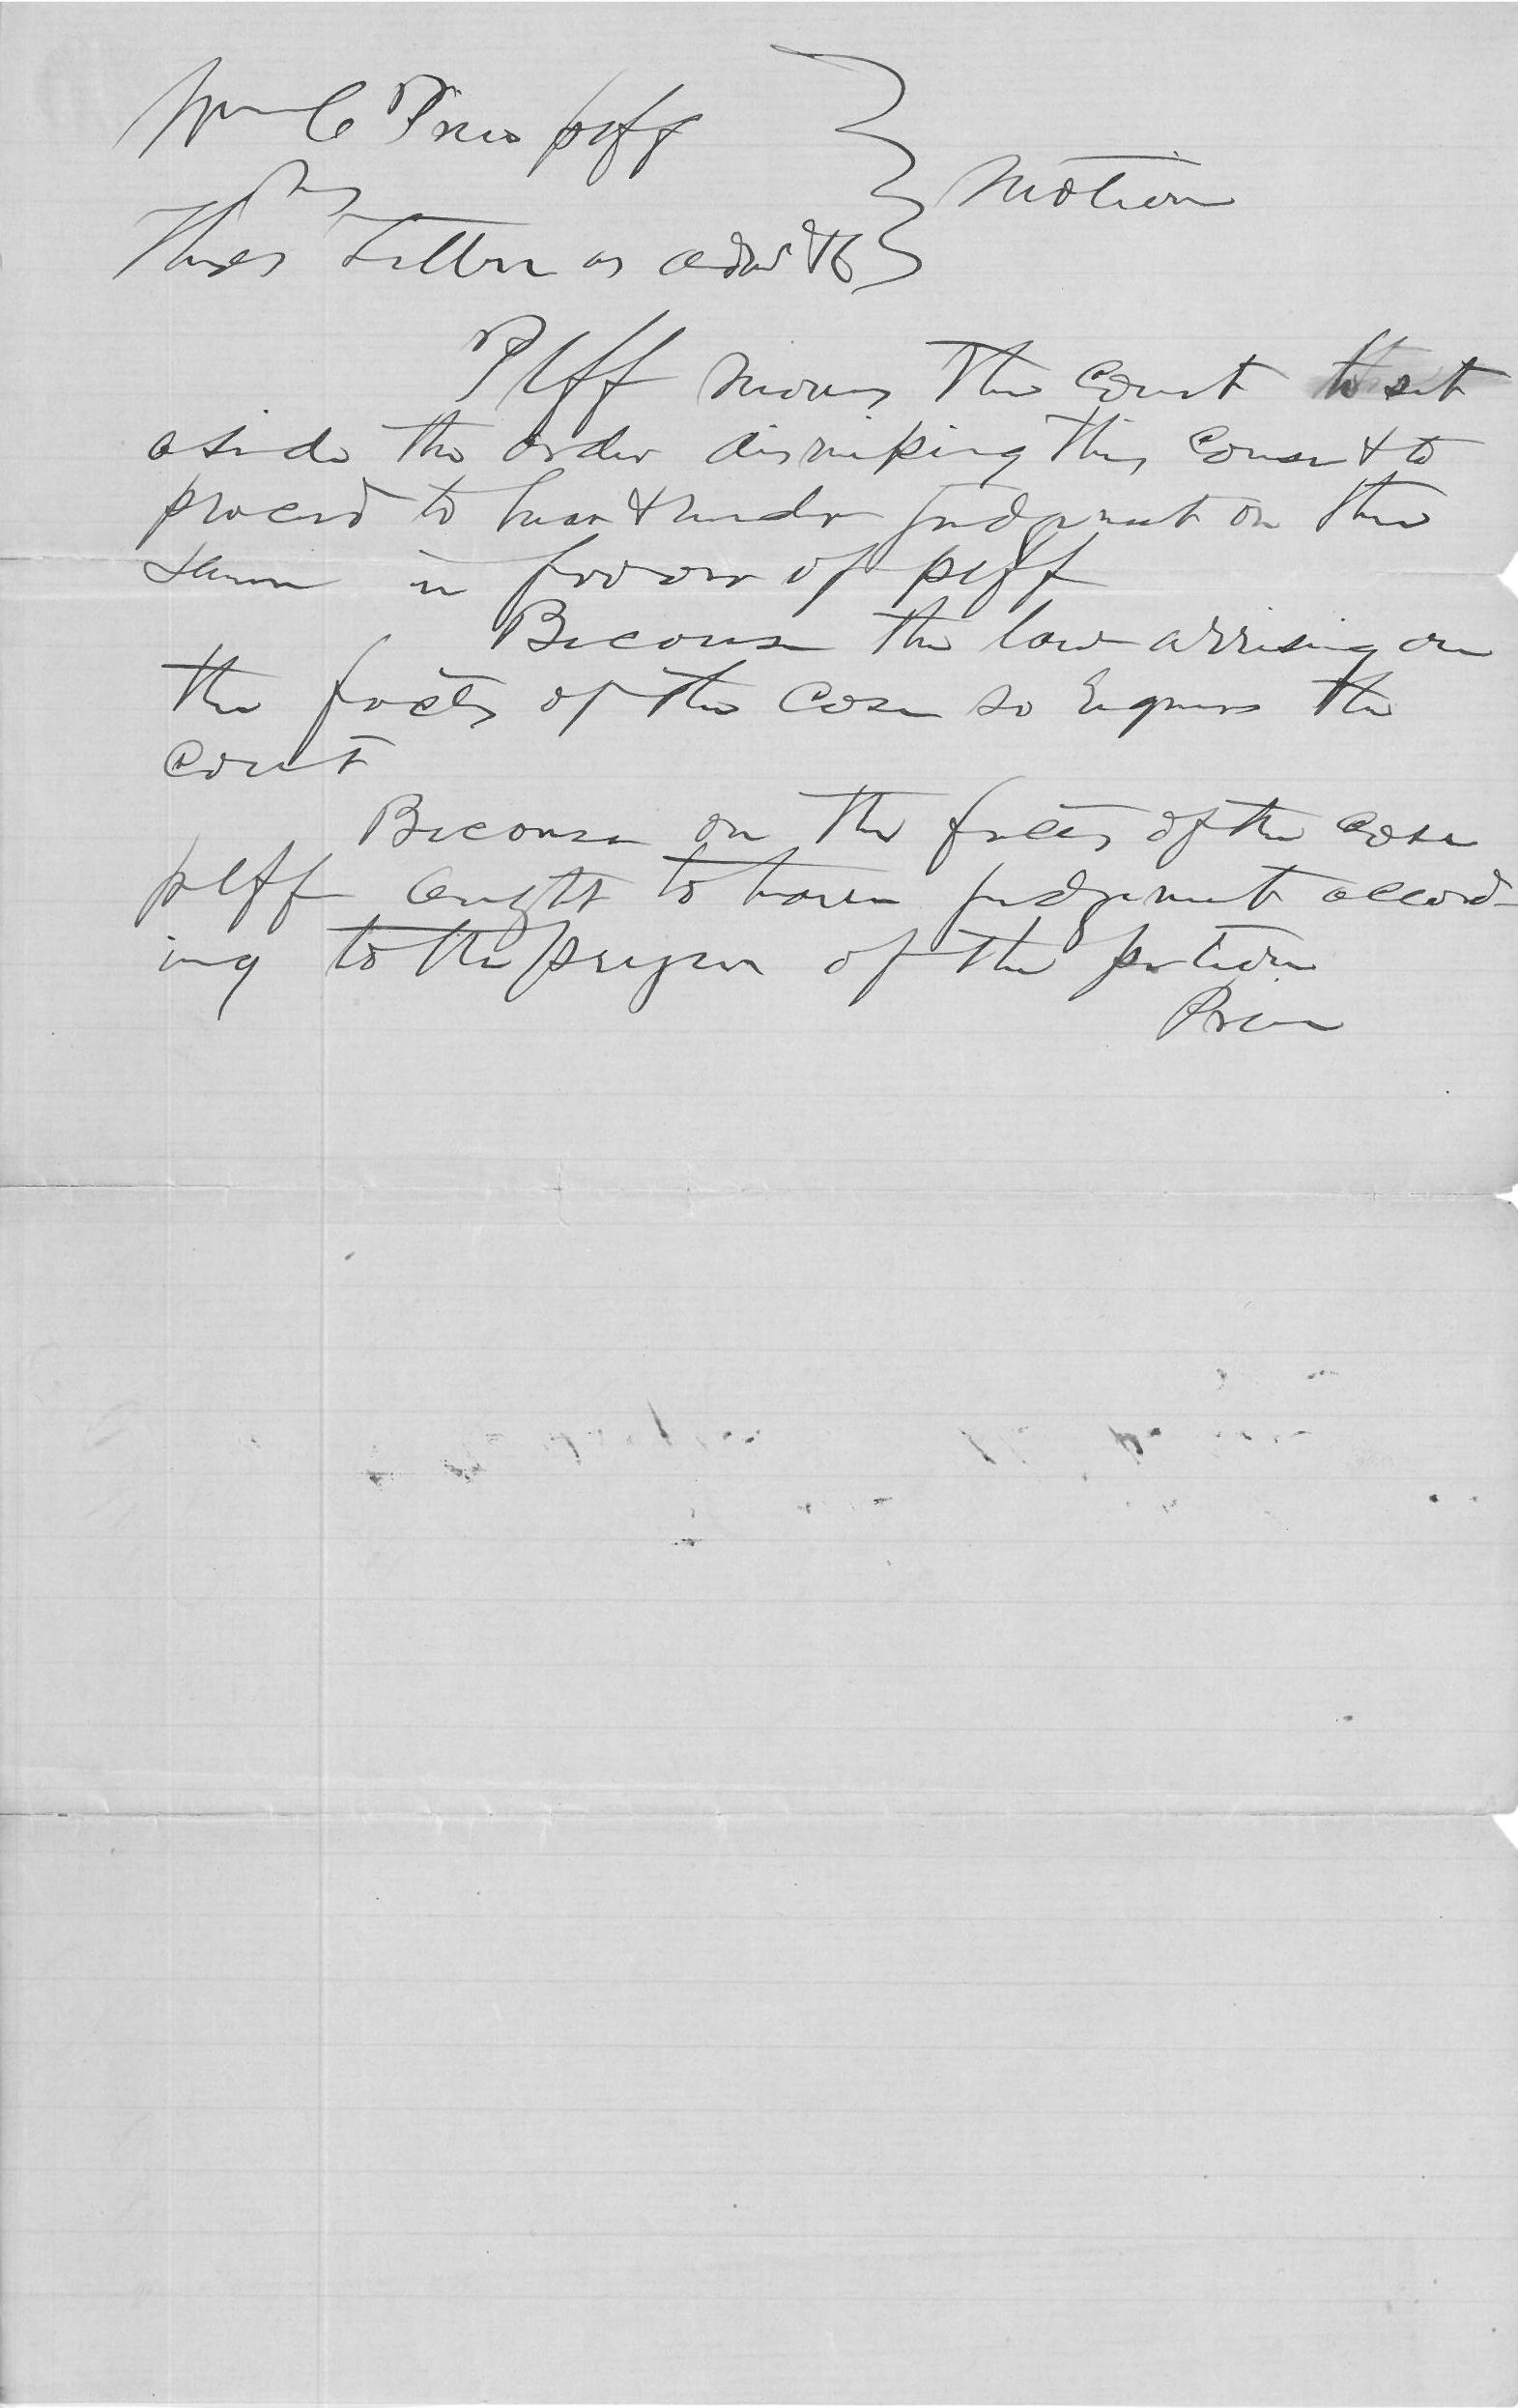 Wm C Price plff
vs
Thos Tiller as adm &c } Motion
Plff moves the Court to set
aside the order dismissing this cause & to
proceed to hear & render judgment on the
same in favour of plff
Because the law arrising on
the facts of the case so requires the
court
Because on the facts of the case
plff aught to have judgment accord-
ing to the prayer of the petition
Price